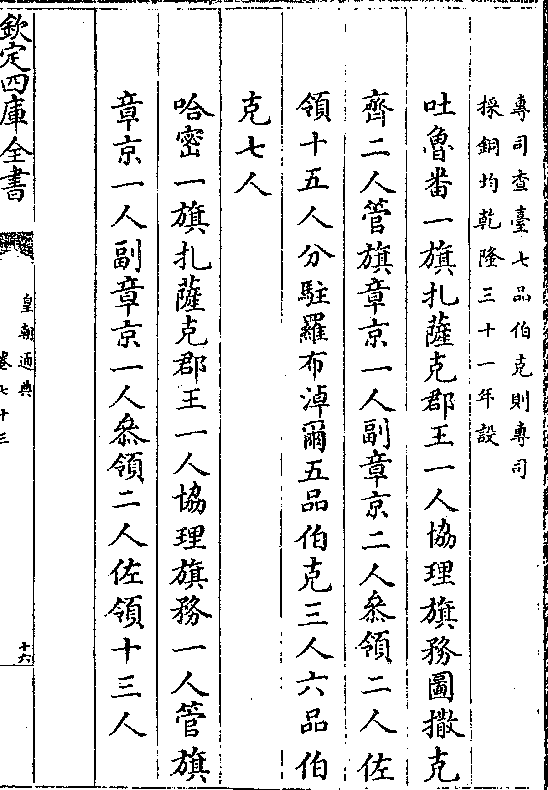 專司查臺七品伯克則專司
採銅均乾隆三十一年設
吐魯番一旗扎薩克郡王一人協理旗務圖撒克
齊二人管旗章京一人副章京二人叅領二人佐
領十五人分駐羅布淖爾五品伯克三人六品伯
克七人
哈密一旗扎薩克郡王一人協理旗務一人管旗
章京一人副章京一人叅領二人佐領十三人
欽定四庫全書
皇朝通典
卷七十三
十六